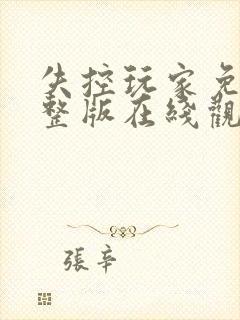 失控玩家免
整版在綫觀
張辛